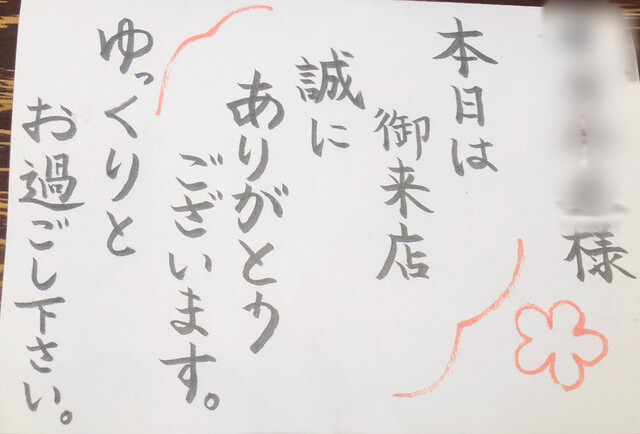 様
本日は
御来店
誠に
ありがとう
ございます。
ゆっくりと
お過ごし下さい。